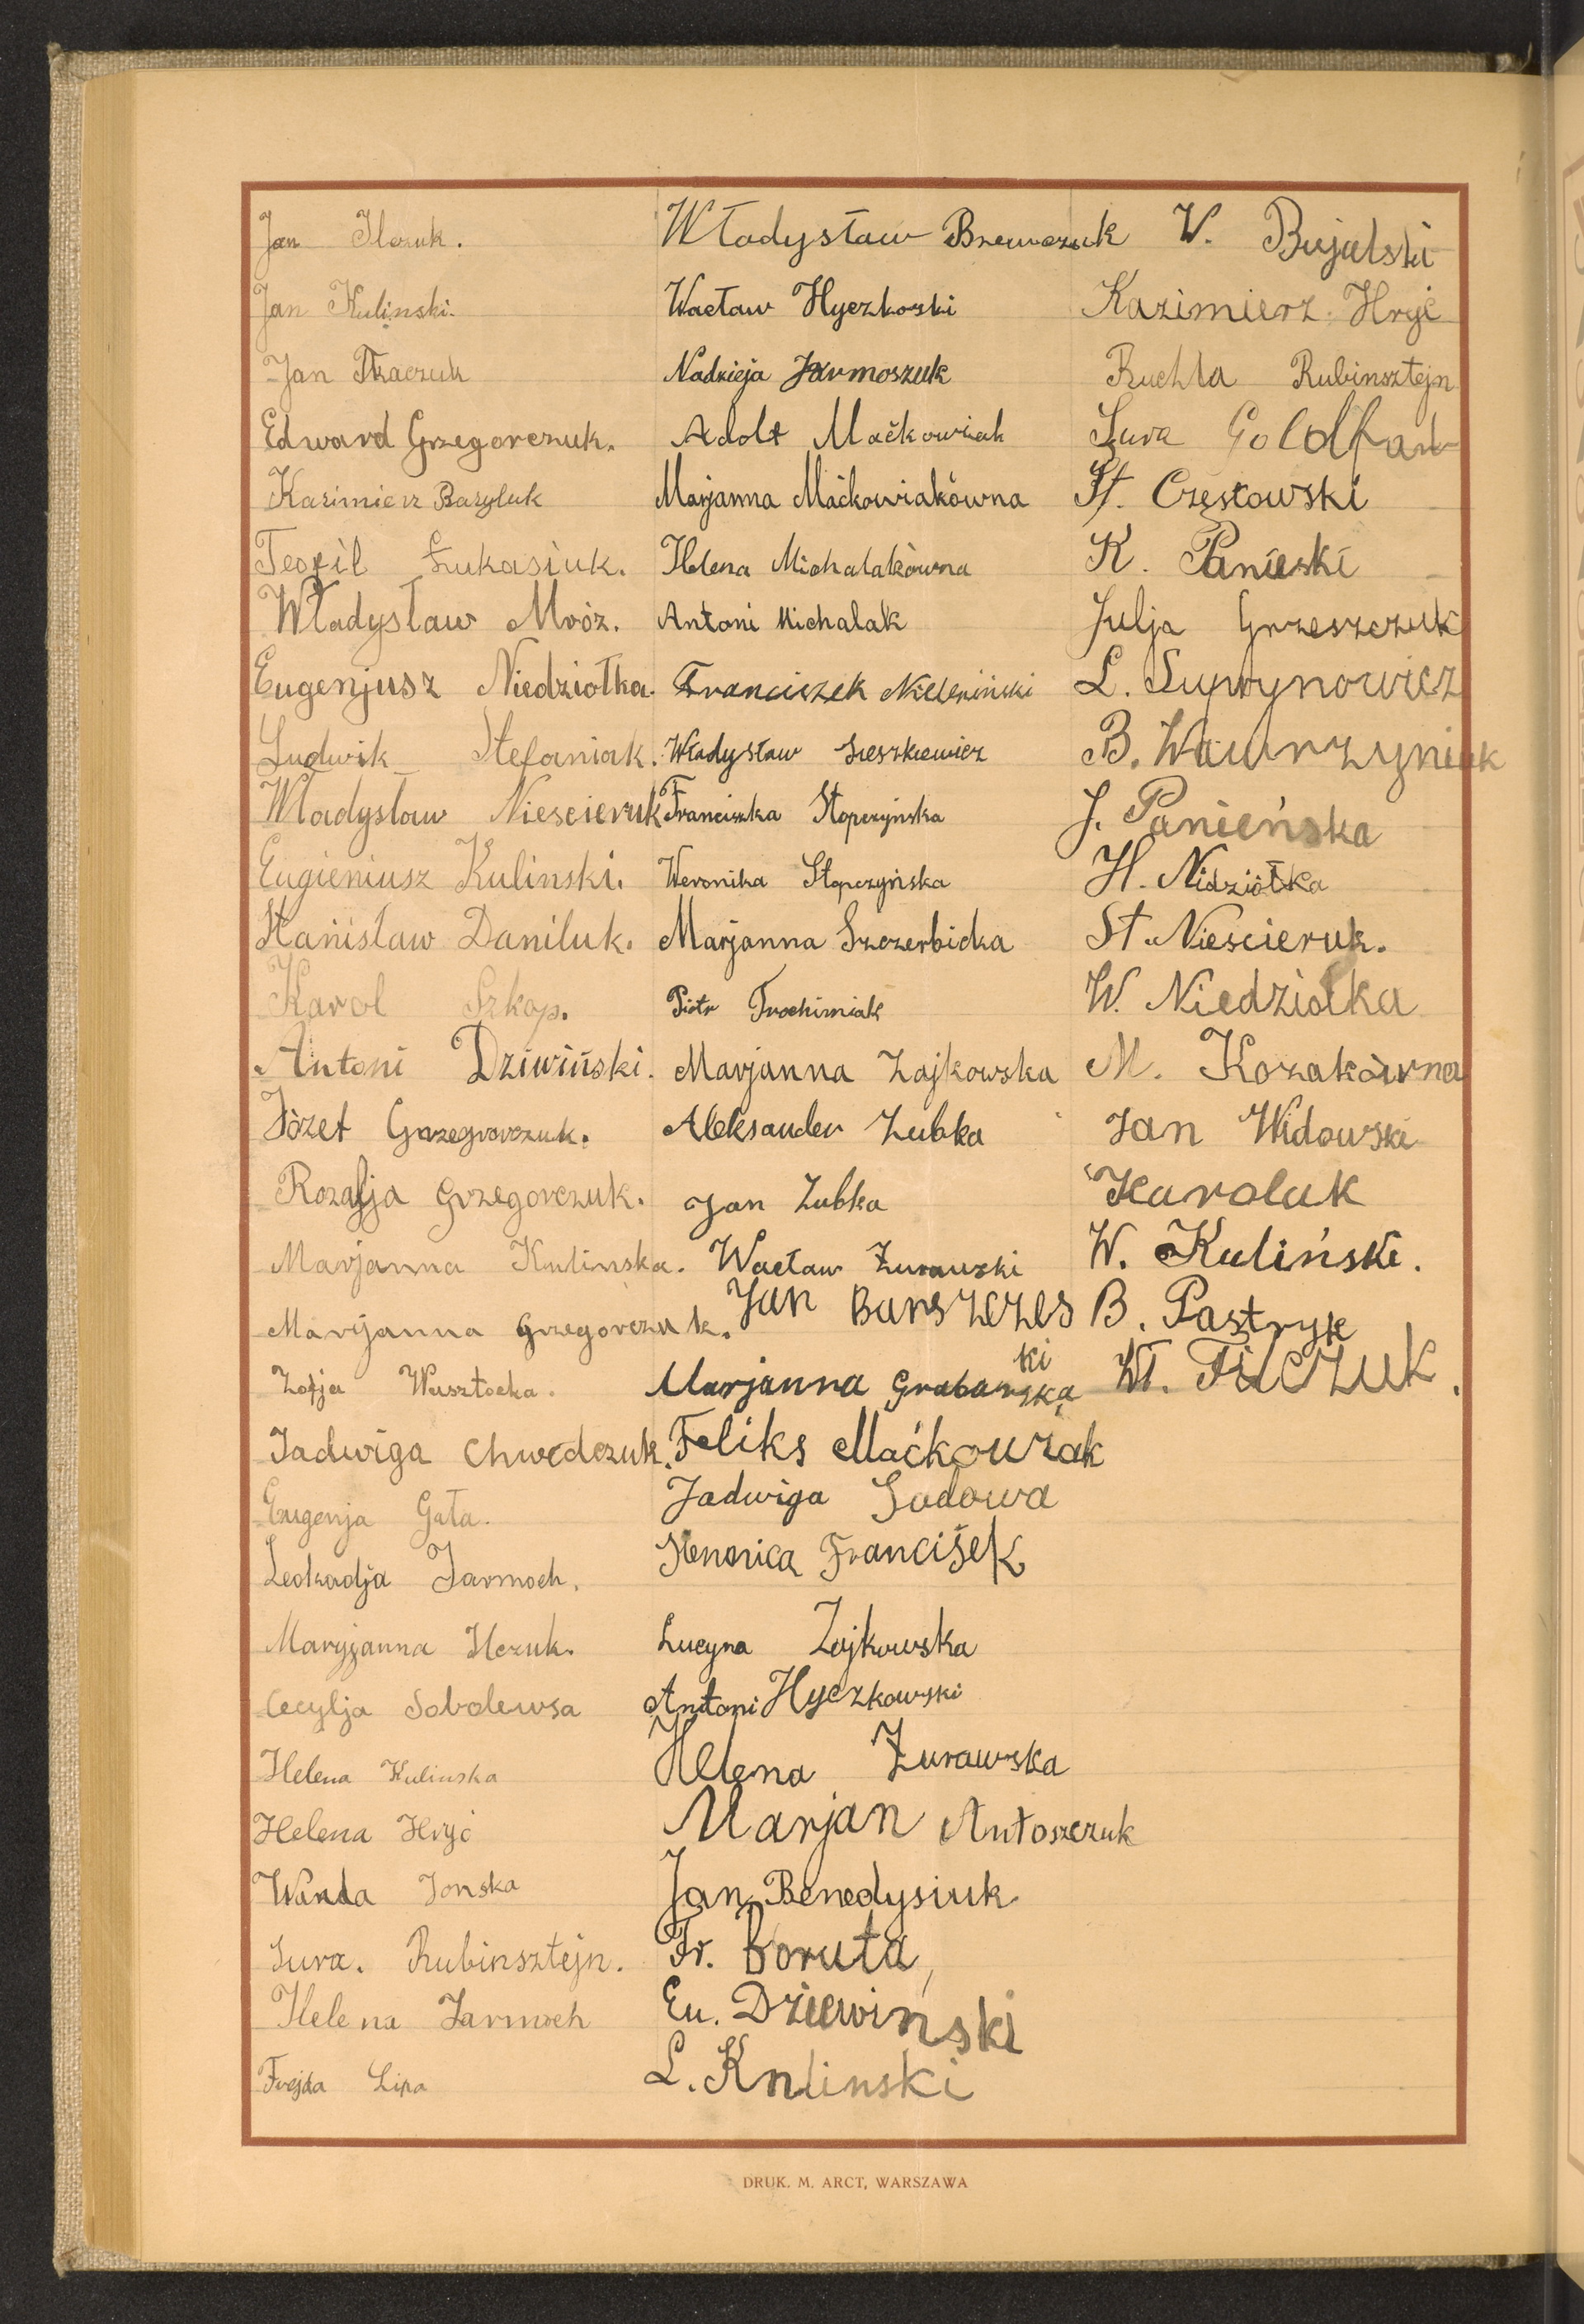 Jan Ilczuk.
Jan Kulinski.
Jan Tkaczuk
Edward Grzegorczuk.
Kazimierz Bazyluk
Teofil Łukasiuk.
Władysław Mróz.
Eugenjusz Niedziołka.
Ludwik Stefaniak.
Władysław Niescieruk
Eugieniusz Kulinski.
Stanisław Daniluk.
Karol Szkop.
Antoni Dziwiński.
Józef Grzegorczuk.
Rozalja Grzegorczuk.
Marjanna Kulinska.
Marijanna Grzegorczuk.
Zofja Wusztocka.
Jadwiga Chwedczuk.
Eugenja Gała.
Leokadja Jarmoch.
Maryjanna Ilczuk.
Cecylja Sobolewsa
Helena Kulinska
Helena Hryć
Wanda Jonska
Sura. Rubinsztejn.
Helena Jarmoch
Frejda Lipa
Władysław Brzewczuk
Wacław Hyczkoski
Nadzieja Jarmoszuk
Adolf Maćkowiak
Marjanna Maćkowiakówna
Helena Michalakówna
Antoni Michalak
Franciszek Nieleniński
Władysław Sieszkiewicz
Franciszka Stopczyńska
Weronika Stopczyńska
Marjanna Szczerbicka
Piotr Trochimiak
Marjanna Zajkowska
Aleksander Zubka
Jan Zubka
Wacław Żurawski
Jan Barszczes
ki
Marjanna Grabarska
Feliks Maćkowiak
Jadwiga Sadowa
Henorica Francišek
Lucyna Zajkowska
Antoni Hyczkowski
Helena Żurawska
Marjan Antoszczuk
Jan Benedysiuk
Fr. Boruta
Eu. Dziewiński
L. Knlinski
W. Bujalski
Kazimierz Hryć
Ruchla Rubinsztejn
Sura Goldfarb
St. Częstowski
K. Panieski
Julja Grzeszczuk
L. Suprynowicz
B. Wawrzyniuk
J. Panieńska
H. Nidziółka
St. Niescieruk.
W. Niedziółka
M. Kozakówna
Jan Widowski
Karoluk
W. Kuliński.
B. Pastryk
Wł. Filczuk.
DRUK. M. ARCT, WARSZAWA